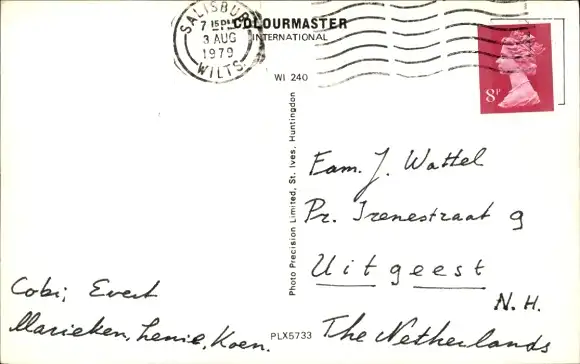 SALISBURY
7 15 PM
3 AUG
1979
WILTS
COLOURMASTER
INTERNATIONAL
WI 240
8P
Photo Precision Limited, St. Ives, Huntingdon
Fam. J. Wattel
Pr. Irenestraat 9
Uitgeest
N.H.
The Netherlands
Cobi, Evert
Marieken, Lenie, Koen.
PLX5733